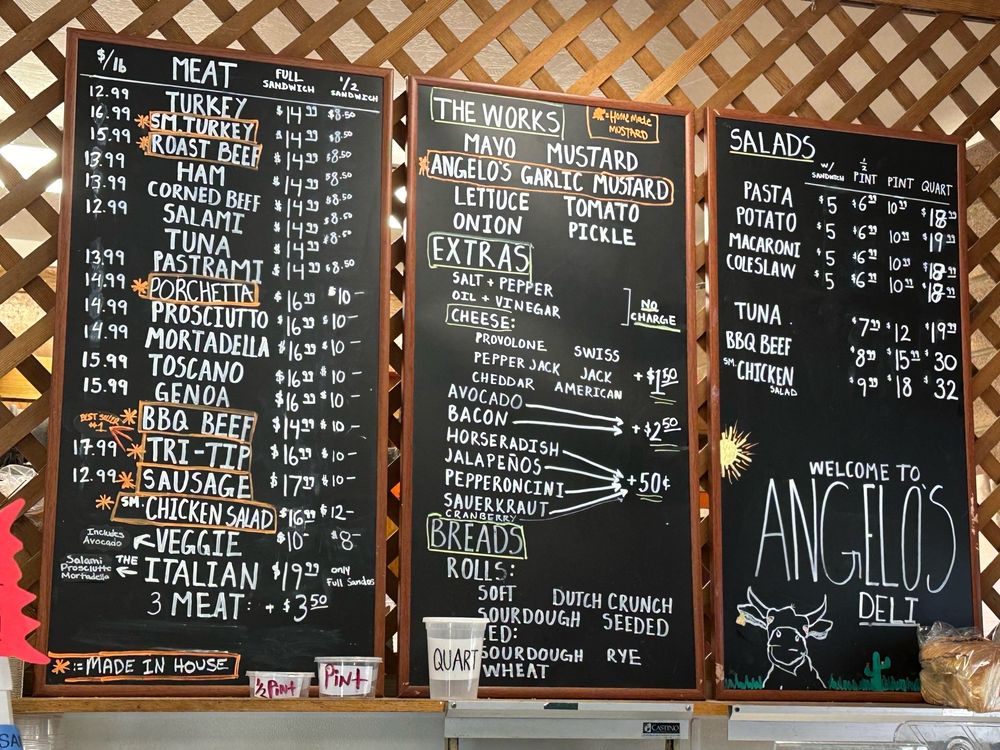 $/lb MEAT FULL SANDWICH 1/2 SANDWICH
12.99 TURKEY $14.99 $8.50
16.99 *SM.TURKEY $14.99 $8.50
15.99 *ROAST BEEF $14.99 $8.50
13.99 HAM $14.99 $8.50
13.99 CORNED BEEF $14.99 $8.50
12.99 SALAMI $14.99 $8.50
TUNA $14.99 $8.50
13.99 PASTRAMI $14.99 $8.50
14.99 *PORCHETTA $16.99 $10-
14.99 PROSCIUTTO $16.99 $10-
14.99 MORTADELLA $16.99 $10-
15.99 TOSCANO $16.99 $10-
15.99 GENOA $16.99 $10-
BEST SELLER #1 *BBQ BEEF $14.99 $10-
17.99 *TRI-TIP $16.99 $10-
12.99 *SAUSAGE $17.99 $10-
*SM. CHICKEN SALAD $16.99 $12-
Includes Avocado VEGGIE $10- $8-
Salami Prosciutto Mortadella THE ITALIAN $19.99 only Full Sandos
3 MEAT: + $3.50
*:= MADE IN HOUSE
1/2 Pint
Pint
THE WORKS
*:= Home Made MUSTARD
MAYO MUSTARD
*ANGELO'S GARLIC MUSTARD
LETTUCE TOMATO
ONION PICKLE
EXTRAS
SALT + PEPPER
OIL + VINEGAR
NO CHARGE
CHEESE:
PROVOLONE SWISS
PEPPER JACK JACK
CHEDDAR AMERICAN
+ $1.50
AVOCADO
BACON
+ $2.50
HORSERADISH
JALAPEÑOS
PEPPERONCINI
+50¢
SAUERKRAUT
CRANBERRY
BREADS
ROLLS:
SOFT DUTCH CRUNCH
SOURDOUGH SEEDED
ED:
SOURDOUGH RYE
WHEAT
QUART
CASTINO
SALADS
W/ SANDWICH 1/2 PINT PINT QUART
PASTA $5 $6.99 10.99 $18.99
POTATO $5 $6.99 10.99 $19.99
MACARONI $5 $6.99 10.99 $18.99
COLESLAW $5 $6.99 10.99 $18.99
TUNA $7.99 $12 $19.99
BBQ BEEF $8.99 $15.99 $30
SM. CHICKEN SALAD $9.99 $18 $32
WELCOME TO
ANGELO'S
DELI